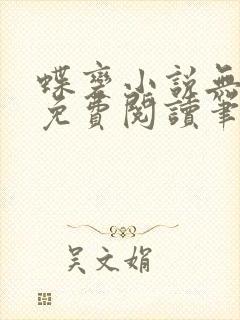 蝶變小說無
免費閱讀筆
吴文娟